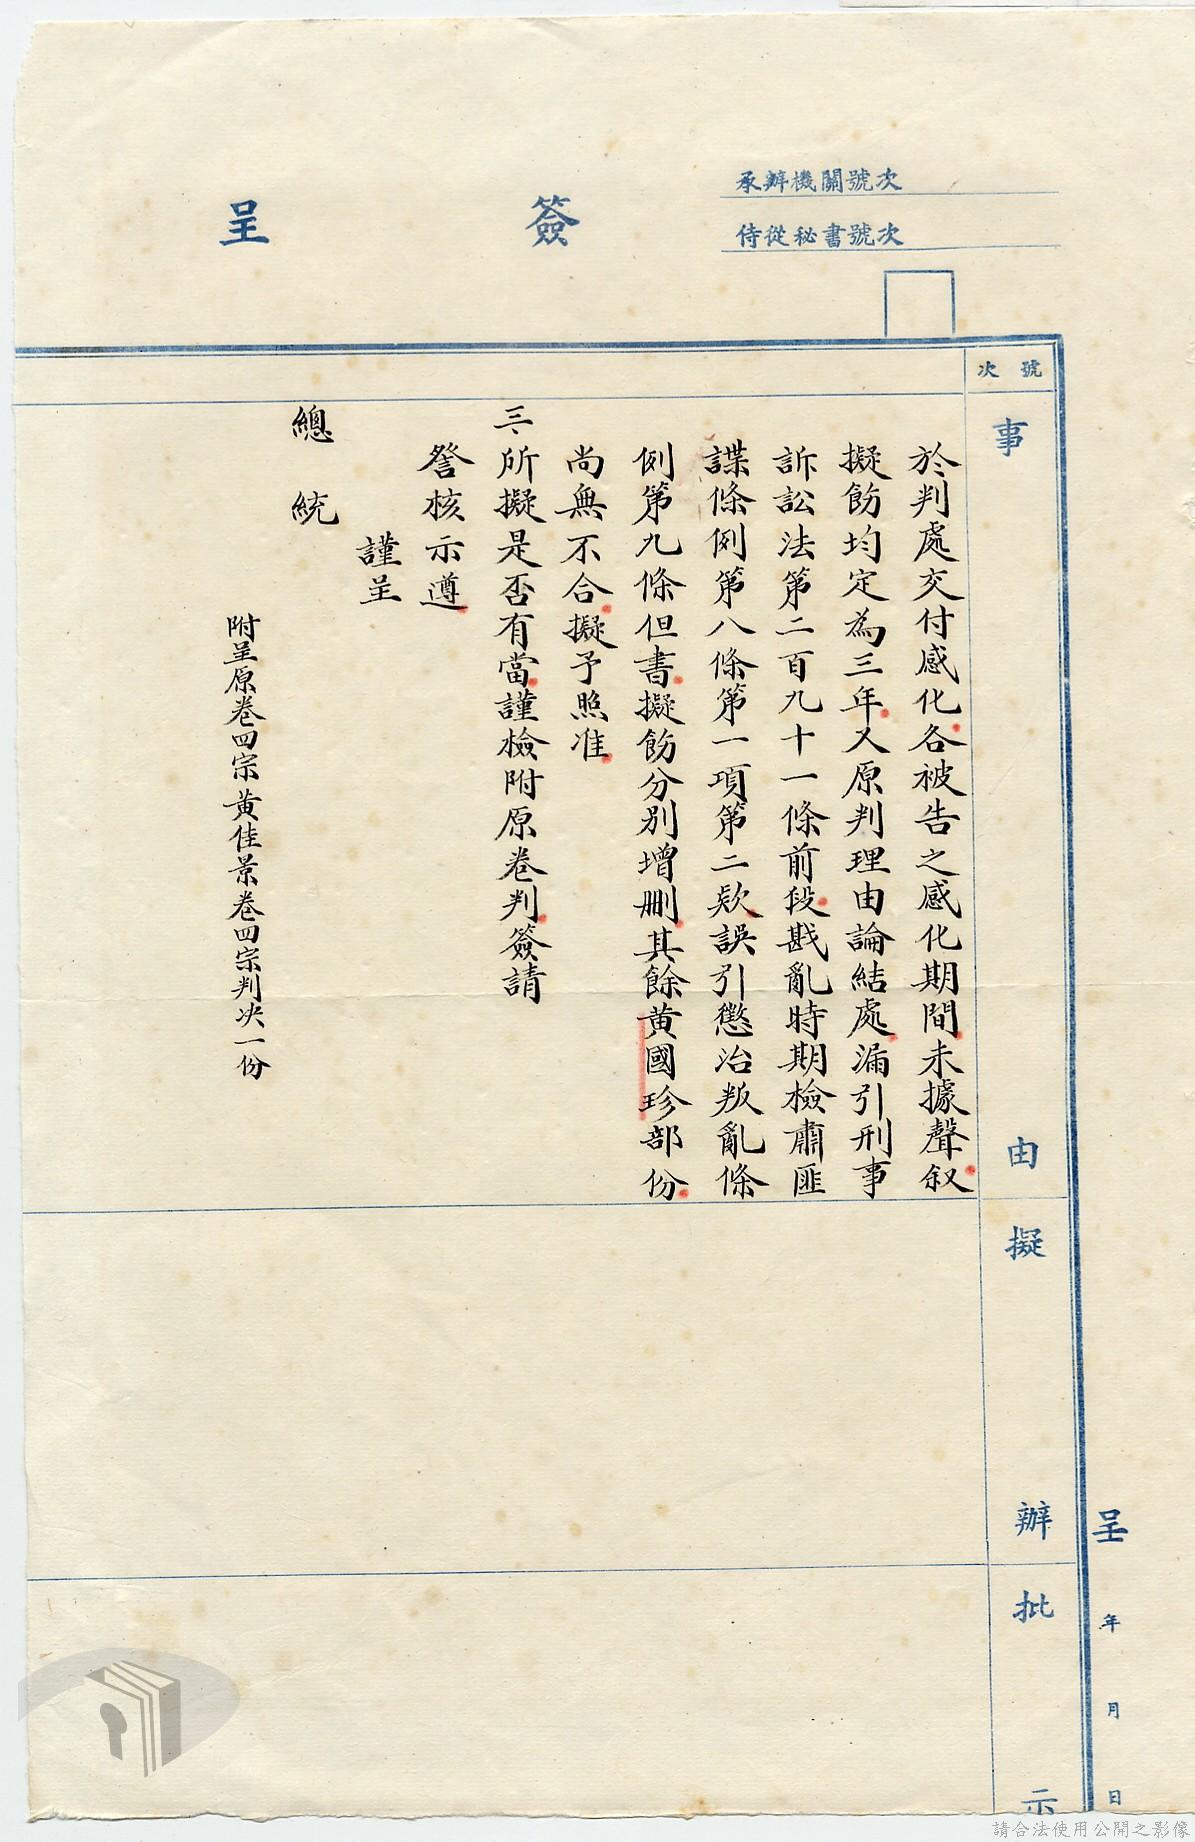 承辦機關號次
侍從秘書號次
簽呈
號次
事由
擬辦
批示
呈 年 月 日
於判處交付感化各被告之感化期間未據聲叙
擬飭均定為三年又原判理由論結處漏引刑事
訴訟法第二百九十一條前段戡亂時期檢肅匪
諜條例第八條第一項第二款誤引懲治叛亂條
例第九條但書擬飭分別增刪其餘黃國珍部份
尚無不合擬予照准
三、所擬是否有當謹檢附原卷判簽請
詧核示遵
謹呈
總統
附呈原卷四宗黃佳景卷四宗判決一份
請合法使用公開之影像